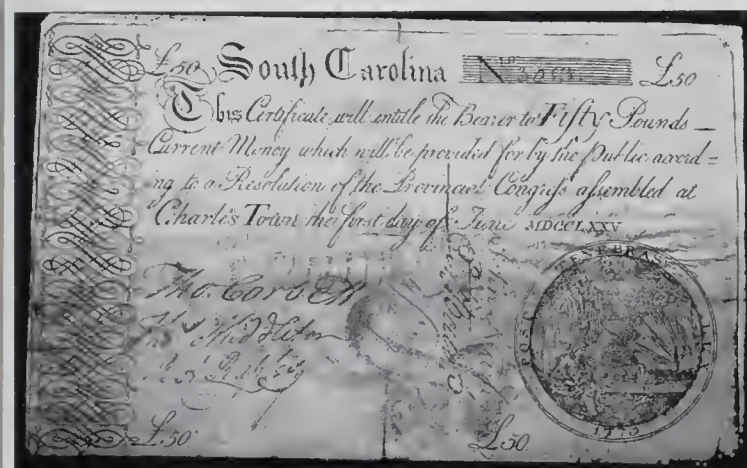 £50 South Carolina No £50
This Certificate will entitle the Bearer to Fifty Pounds
Current Money which will be provided for by the Public accord=
ing to a Resolution of the Provincial Congress assembled at
Charles Town the first day of June MDCCLXXV
Tho: Corbett
POST TENEBRAS LUX
1775
£50 £50